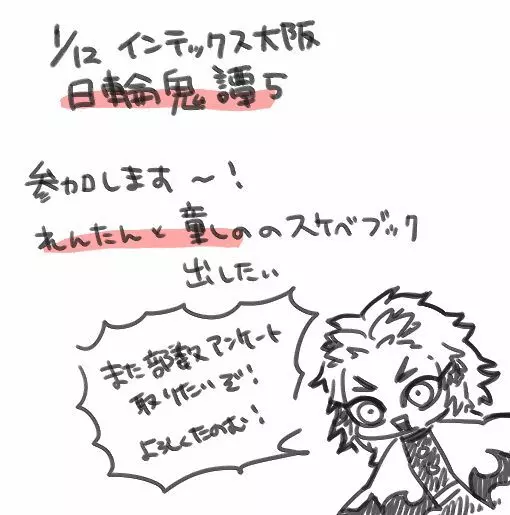 1/12 インテックス大阪
日輪鬼譚5
参加します〜!
れんたんと童しののスケベブック
出したい
また部数アンケート
取りたいぞ!
よろしくたのむ!